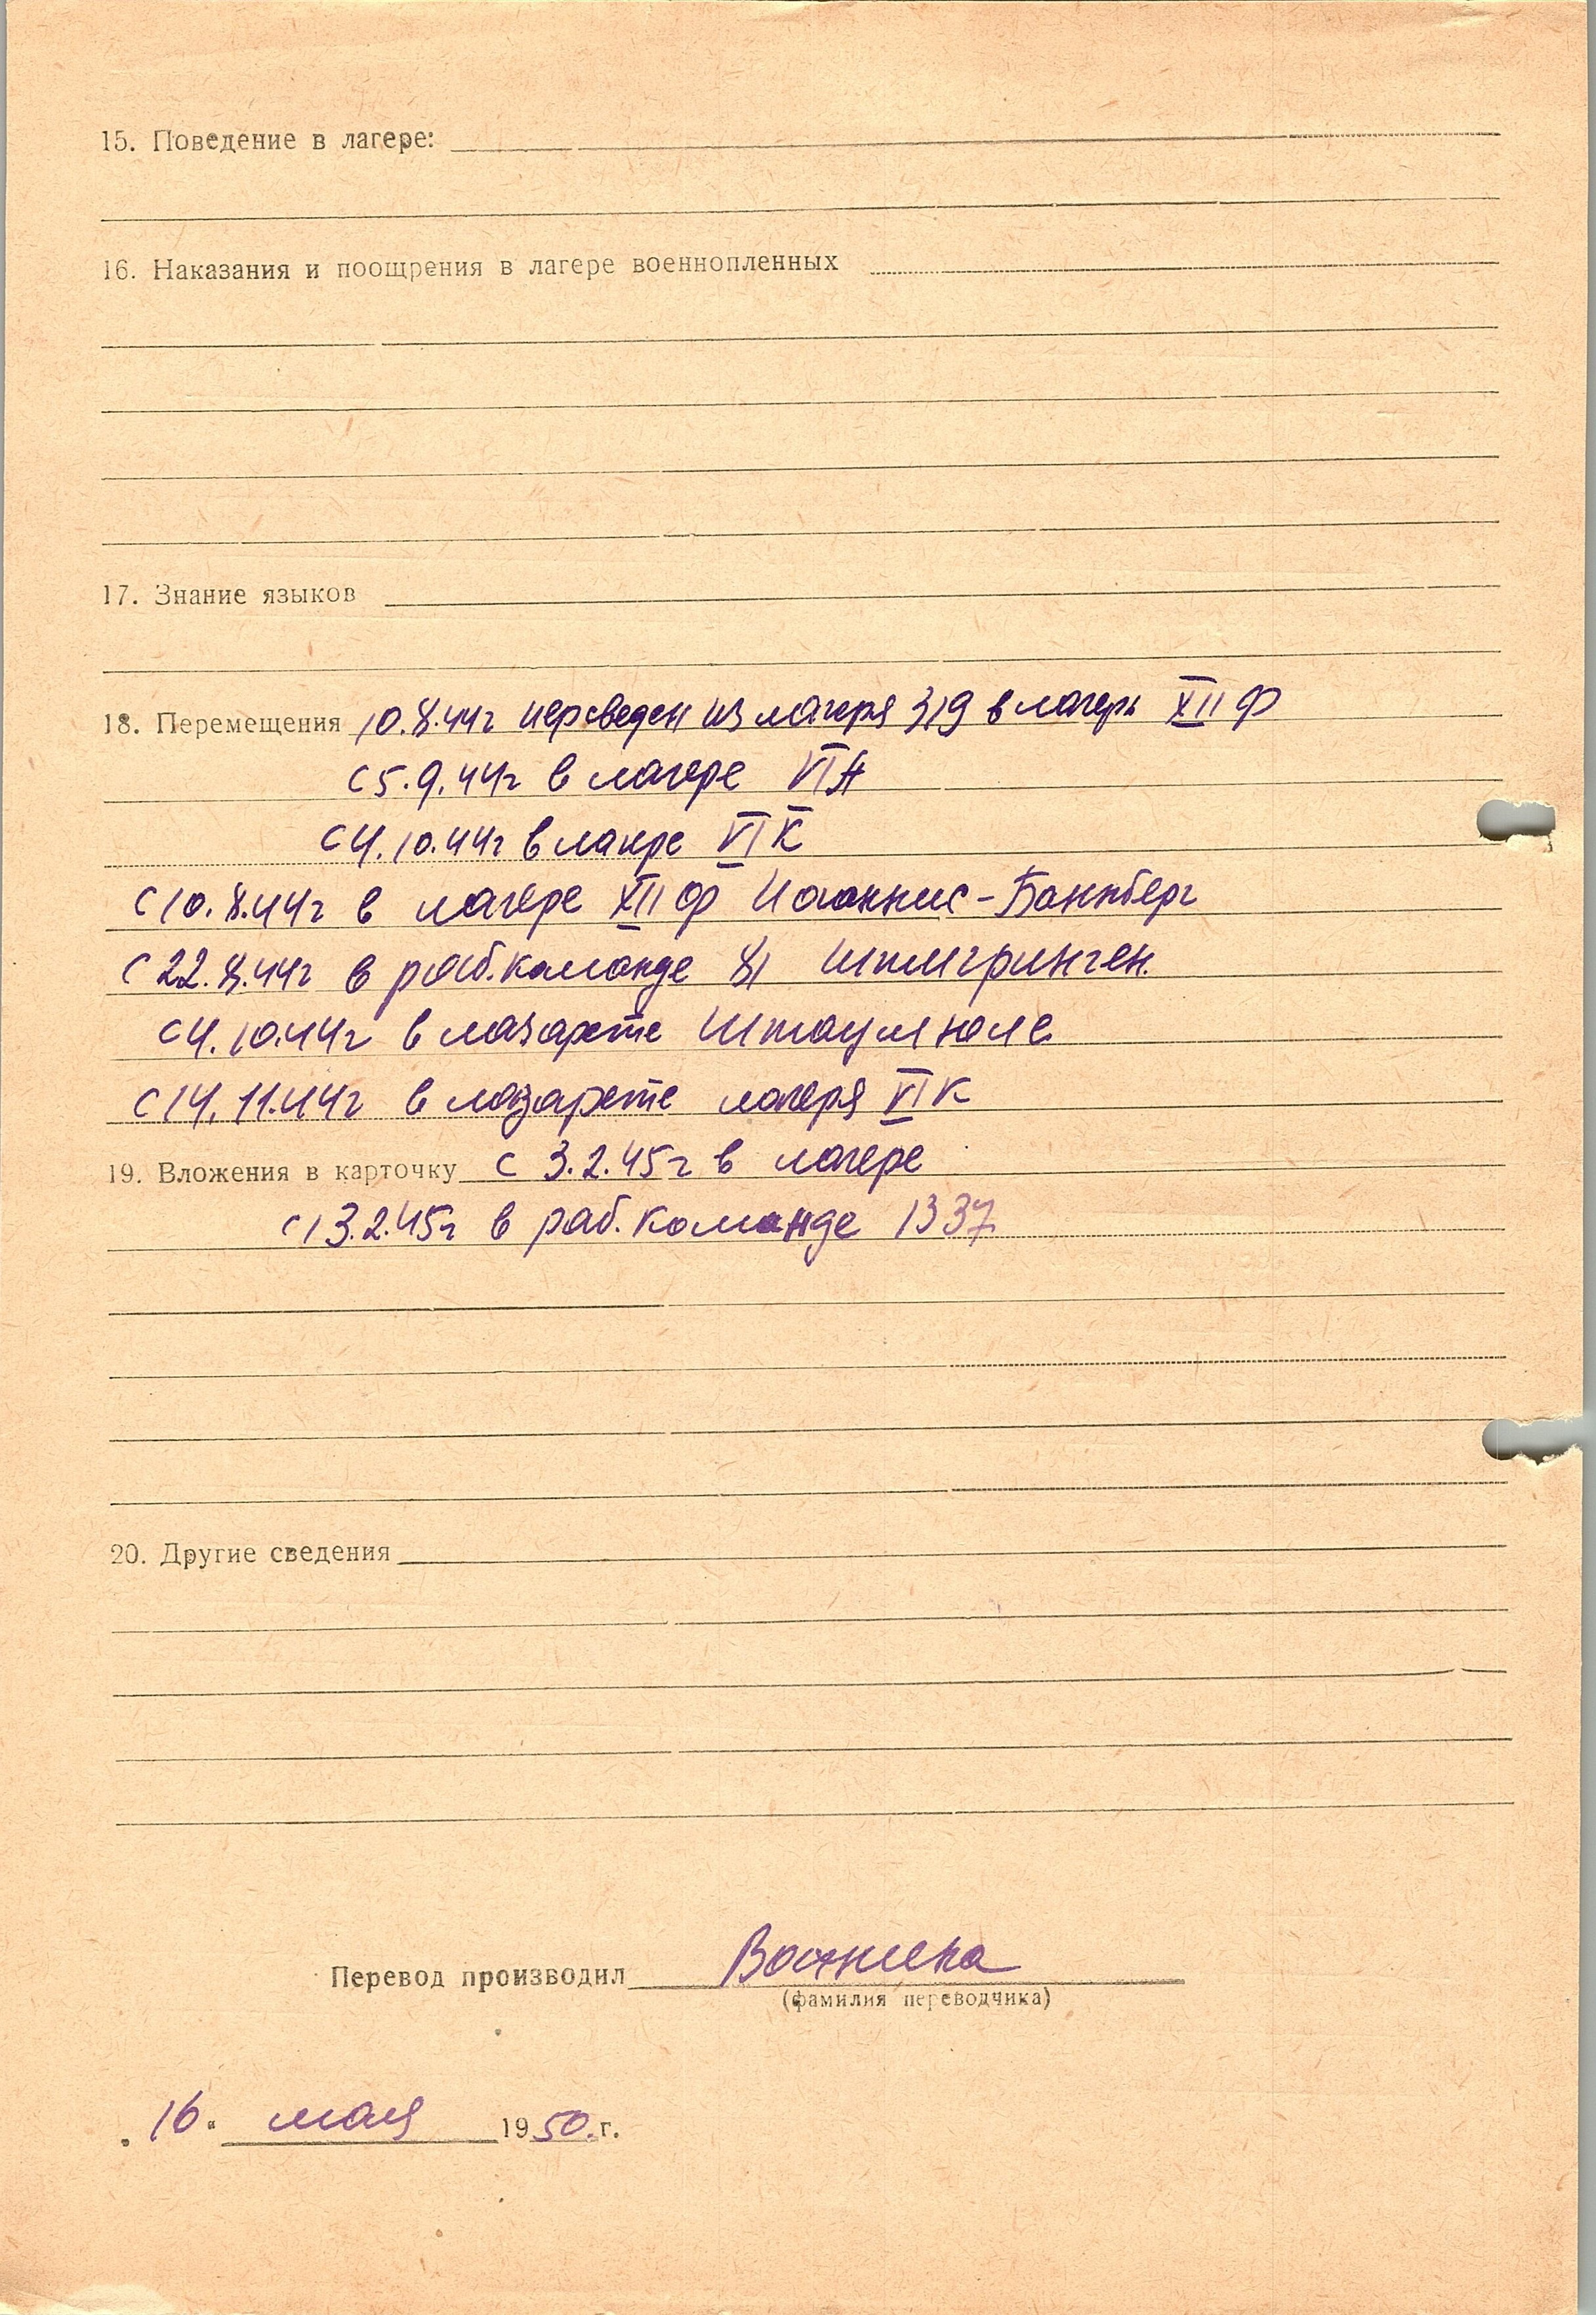 15. Поведение в лагере:
16. Наказания и поощрения в лагере военнопленных
17. Знание языков
18. Перемещения 10.8.44г переведен из лагеря 319 в лагерь XII Ф
с 5.9.44г в лагере VI А
с 4.10.44г в лагре VI К
с 10.8.44г в лагере XII Ф Иоаннис-Баннберг
с 22.8.44г в раб. команде 81
с 4.10.44г в лазарете Штаумюле
с 14.11.44г в лазарете лагеря VI К
19. Вложения в карточку с 3.2.45г в лагере
с 13.2.45г в раб. команде 1337
20. Другие сведения
Перевод производил
(фамилия переводчика)
16. мая 1950.г.